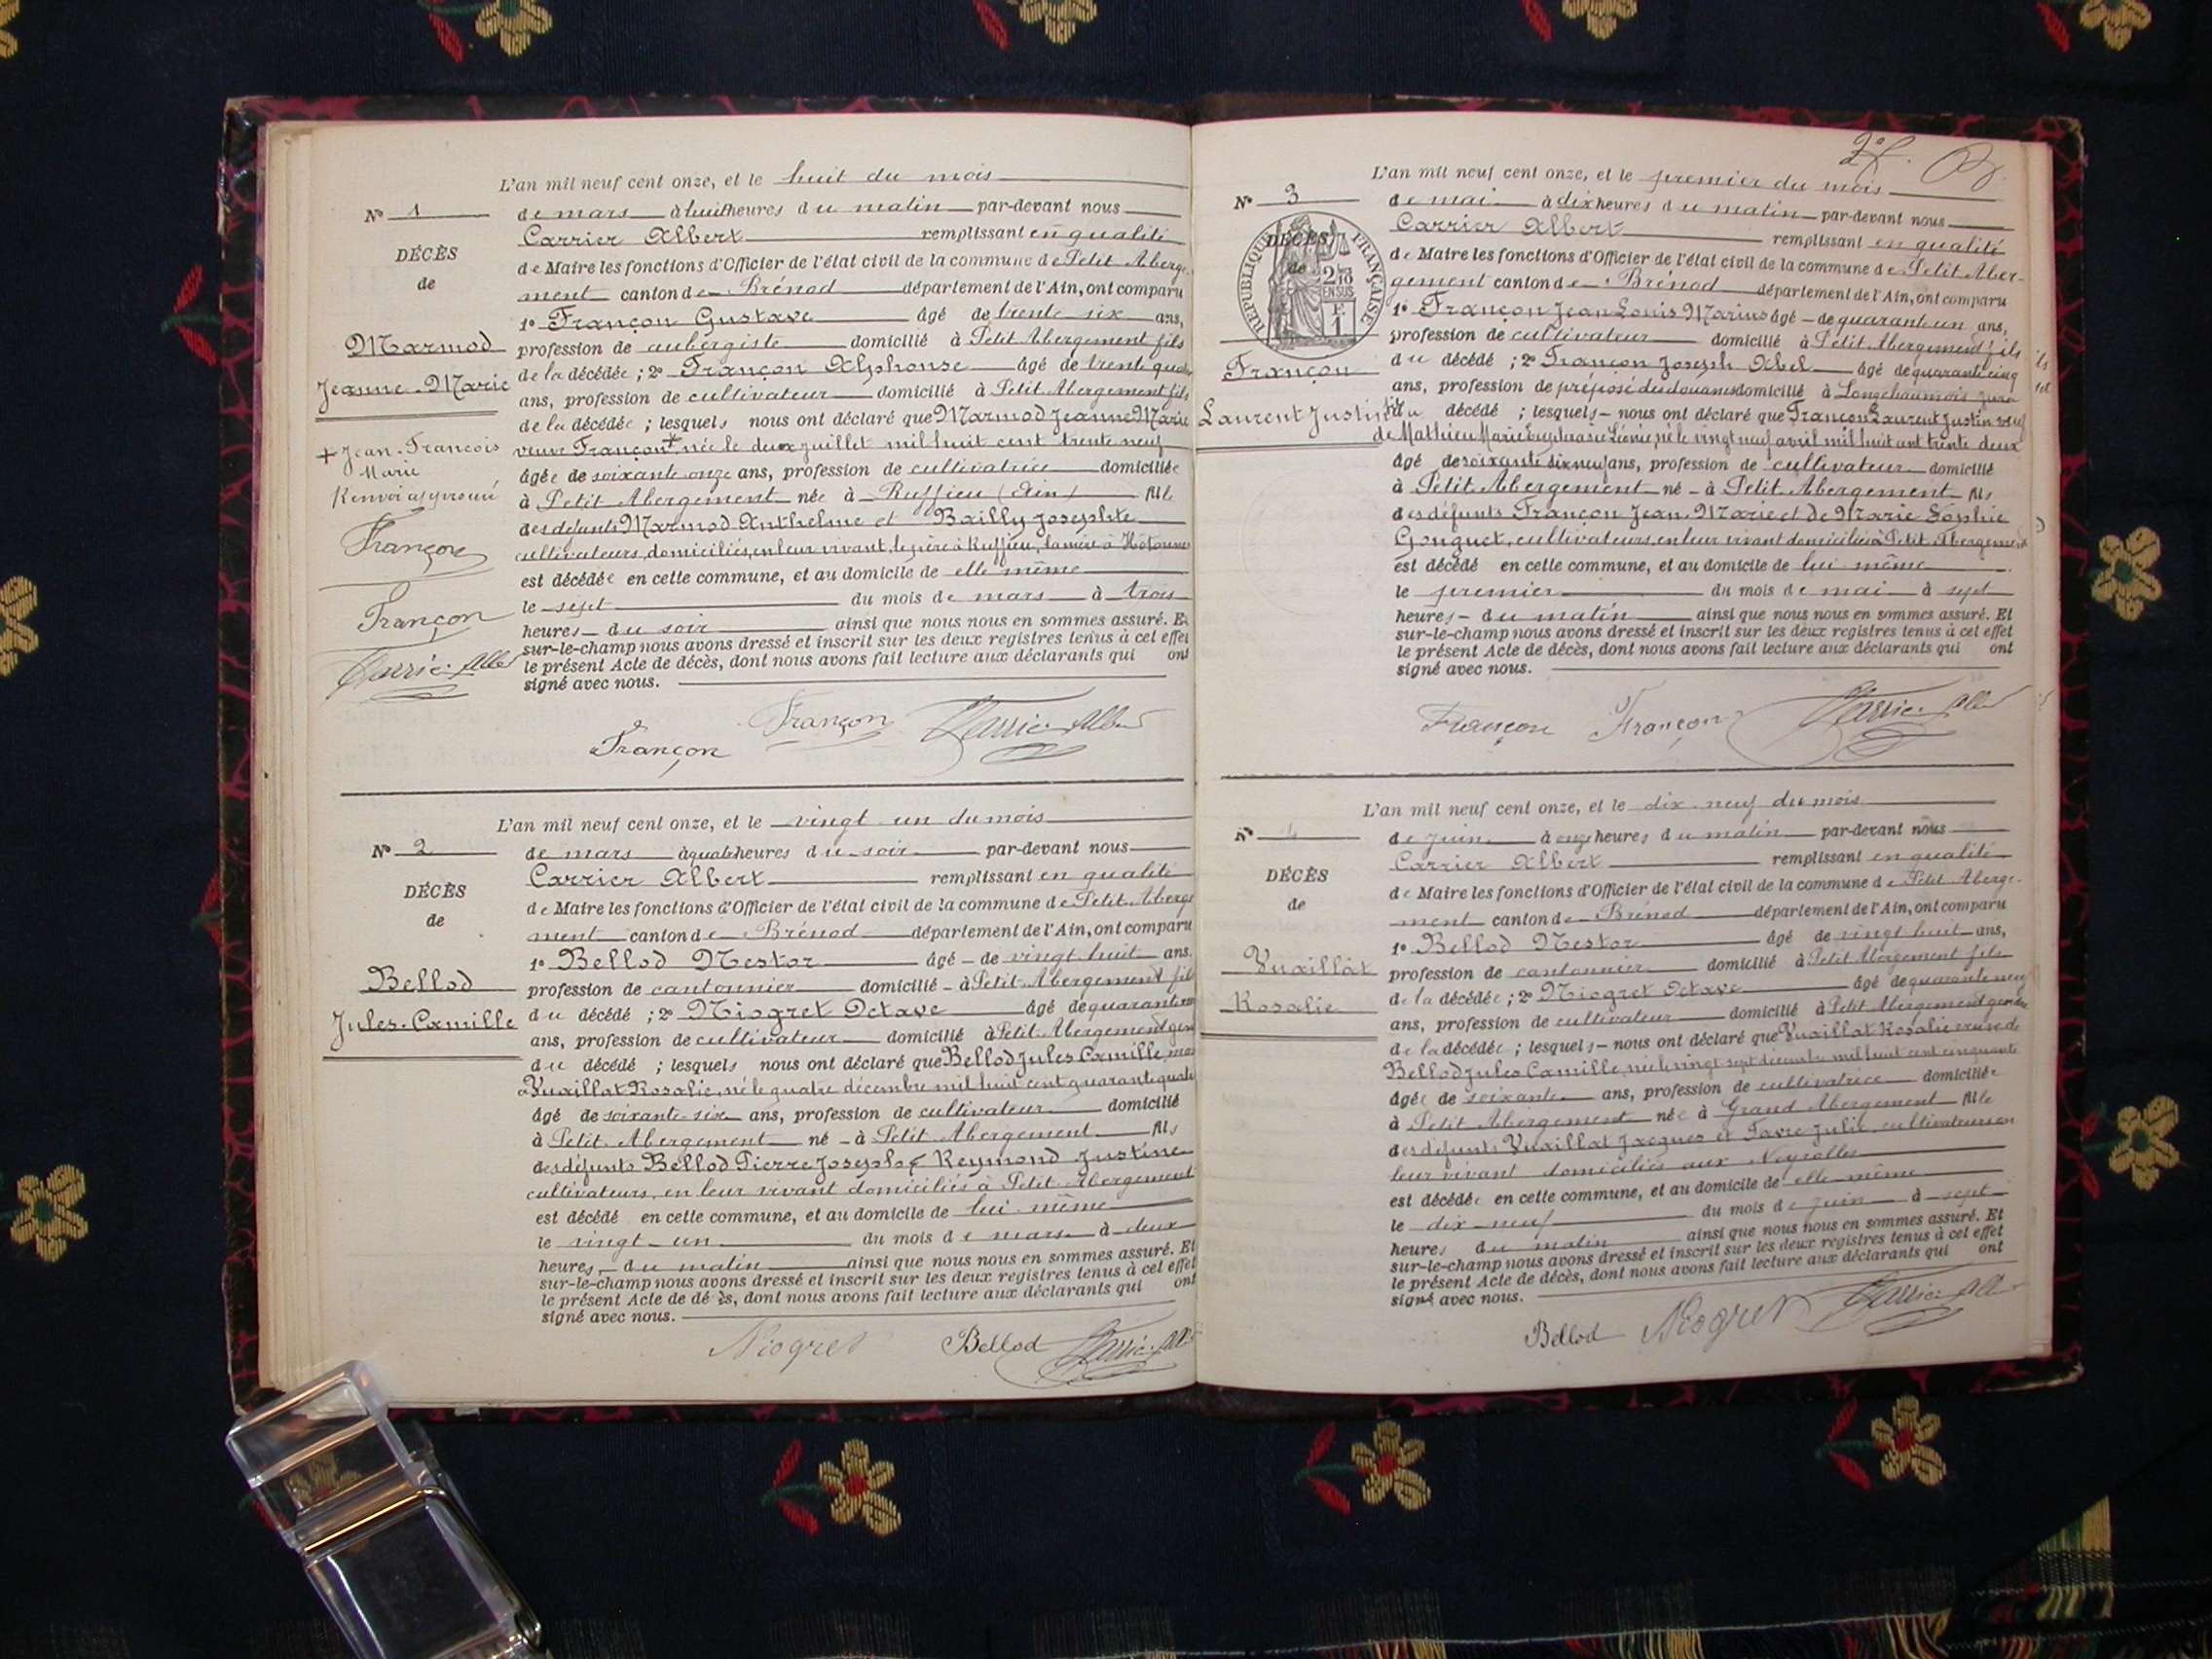 L'an mil neuf cent onze, et le huit du mois
N° 1
de mars à huit heures du matin par-devant nous
Carrier Albert remplissant en qualité
DÉCÈS
de Maire les fonctions d'Officier de l'état civil de la commune de Petit Aberge-
de
ment canton de Brénod département de l'Ain, ont comparu
1° Françon Gustave âgé de trente six ans,
Marmod
profession de aubergiste domicilié à Petit Abergement fils
de la décédée ; 2° Françon Alphonse âgé de trente quatre
Jeanne-Marie
ans, profession de cultivateur domicilié à Petit Abergement fils
de la décédée ; lesquels nous ont déclaré que Marmod Jeanne Marie
+ Jean-François
Marie
Renvoi approuvé
veuve Françon + née le deux juillet mil huit cent trente neuf
âgée de soixante onze ans, profession de cultivatrice domiciliée
à Petit Abergement née à Ruffieu (Ain) fille
Françon
des défunts Marmod Anthelme et Bailly Josephte
cultivateurs, domiciliés, en leur vivant, le père à Ruffieu, la mère à Hotonnes
est décédée en cette commune, et au domicile de elle même
Françon
le sept du mois de mars à trois
heures du soir ainsi que nous nous en sommes assuré. Et
sur-le-champ nous avons dressé et inscrit sur les deux registres tenus à cet effet
Carrier Albert
le présent Acte de décès, dont nous avons fait lecture aux déclarants qui ont
signé avec nous.
Françon Françon Carrier Albert
L'an mil neuf cent onze, et le vingt un du mois
N° 2
de mars à quatre heures du soir par-devant nous
Carrier Albert remplissant en qualité
DÉCÈS
de Maire les fonctions d'Officier de l'état civil de la commune de Petit Aberge
de
ment canton de Brénod département de l'Ain, ont comparu
1° Bellod Nestor âgé de vingt huit ans.
Bellod
profession de cantonnier domicilié à Petit Abergement fils
du décédé ; 2° Niogret Octave âgé de quarante
Jules-Camille
ans, profession de cultivateur domicilié à Petit Abergement gendre
du décédé ; lesquels nous ont déclaré que Bellod Jules Camille, mari
à Vuaillat Rosalie, né le quatre décembre mil huit cent quarante quatre
âgé de soixante-six ans, profession de cultivateur domicilié
à Petit Abergement né à Petit Abergement fils
des défunts Bellod Pierre Joseph & Reymond Justine
cultivateurs, en leur vivant domiciliés à Petit Abergement
est décédé en cette commune, et au domicile de lui-même
le vingt-un du mois de mars à deux
heures du matin ainsi que nous nous en sommes assuré. Et
sur-le-champ nous avons dressé et inscrit sur les deux registres tenus à cet effet
le présent Acte de dé ès, dont nous avons fait lecture aux déclarants qui ont
signé avec nous.
Niogret Bellod Carrier Albert
L'an mil neuf cent onze, et le premier du mois
N° 3
de mai à dix heures du matin par-devant nous
RÉPUBLIQUE FRANÇAISE
2/10 EN SUS
F. 1
Carrier Albert remplissant en qualité
DÉCÈS
de Maire les fonctions d'Officier de l'état civil de la commune de Petit Aber-
de
gement canton de Brénod département de l'Ain, ont comparu
1° Françon Jean Louis Marius âgé de quarante un ans,
profession de cultivateur domicilié à Petit Abergement fils
Françon
du décédé ; 2° Françon Joseph Abel âgé de quarante cinq
ans, profession de préposé des douanes domicilié à Longchaumois Jura
Laurent Justin
fils du décédé ; lesquels nous ont déclaré que Françon Laurent Justin veuf
de Mathieu Marie Euphrasie Léonie, né le vingt neuf avril mil huit cent trente deux
âgé de soixante dix neuf ans, profession de cultivateur domicilié
à Petit Abergement né à Petit Abergement fils
des défunts Françon Jean-Marie et de Marie Sophie
Gonguet, cultivateurs, en leur vivant domiciliés à Petit Abergement
est décédé en cette commune, et au domicile de lui même
le premier du mois de mai à sept
heures du matin ainsi que nous nous en sommes assuré. Et
sur-le-champ nous avons dressé et inscrit sur les deux registres tenus à cet effet
le présent Acte de décès, dont nous avons fait lecture aux déclarants qui ont
signé avec nous.
Françon Françon Carrier Albert
L'an mil neuf cent onze, et le dix-neuf du mois
N° 4
de juin à onze heures du matin par-devant nous
Carrier Albert remplissant en qualité
DÉCÈS
de Maire les fonctions d'Officier de l'état civil de la commune de Petit Aberge-
de
ment canton de Brénod département de l'Ain, ont comparu
1° Bellod Nestor âgé de vingt huit ans,
Vuaillat
profession de cantonnier domicilié à Petit Abergement fils
de la décédée ; 2° Niogret Octave âgé de quarante neuf
Rosalie
ans, profession de cultivateur domicilié à Petit Abergement gendre
de la décédée ; lesquels nous ont déclaré que Vuaillat Rosalie veuve de
Bellod Jules Camille, née le vingt sept décembre mil huit cent cinquante
âgée de soixante ans, profession de cultivatrice domiciliée
à Petit Abergement née à Grand Abergement fille
des défunts Vuaillat Jacques et Favre Julie, cultivateurs en
leur vivant domiciliés aux Neyrolles
est décédée en cette commune, et au domicile de elle même
le dix-neuf du mois de juin à sept
heures du matin ainsi que nous nous en sommes assuré. Et
sur-le-champ nous avons dressé et inscrit sur les deux registres tenus à cet effet
le présent Acte de décès, dont nous avons fait lecture aux déclarants qui ont
signé avec nous.
Bellod Niogret Carrier Albert